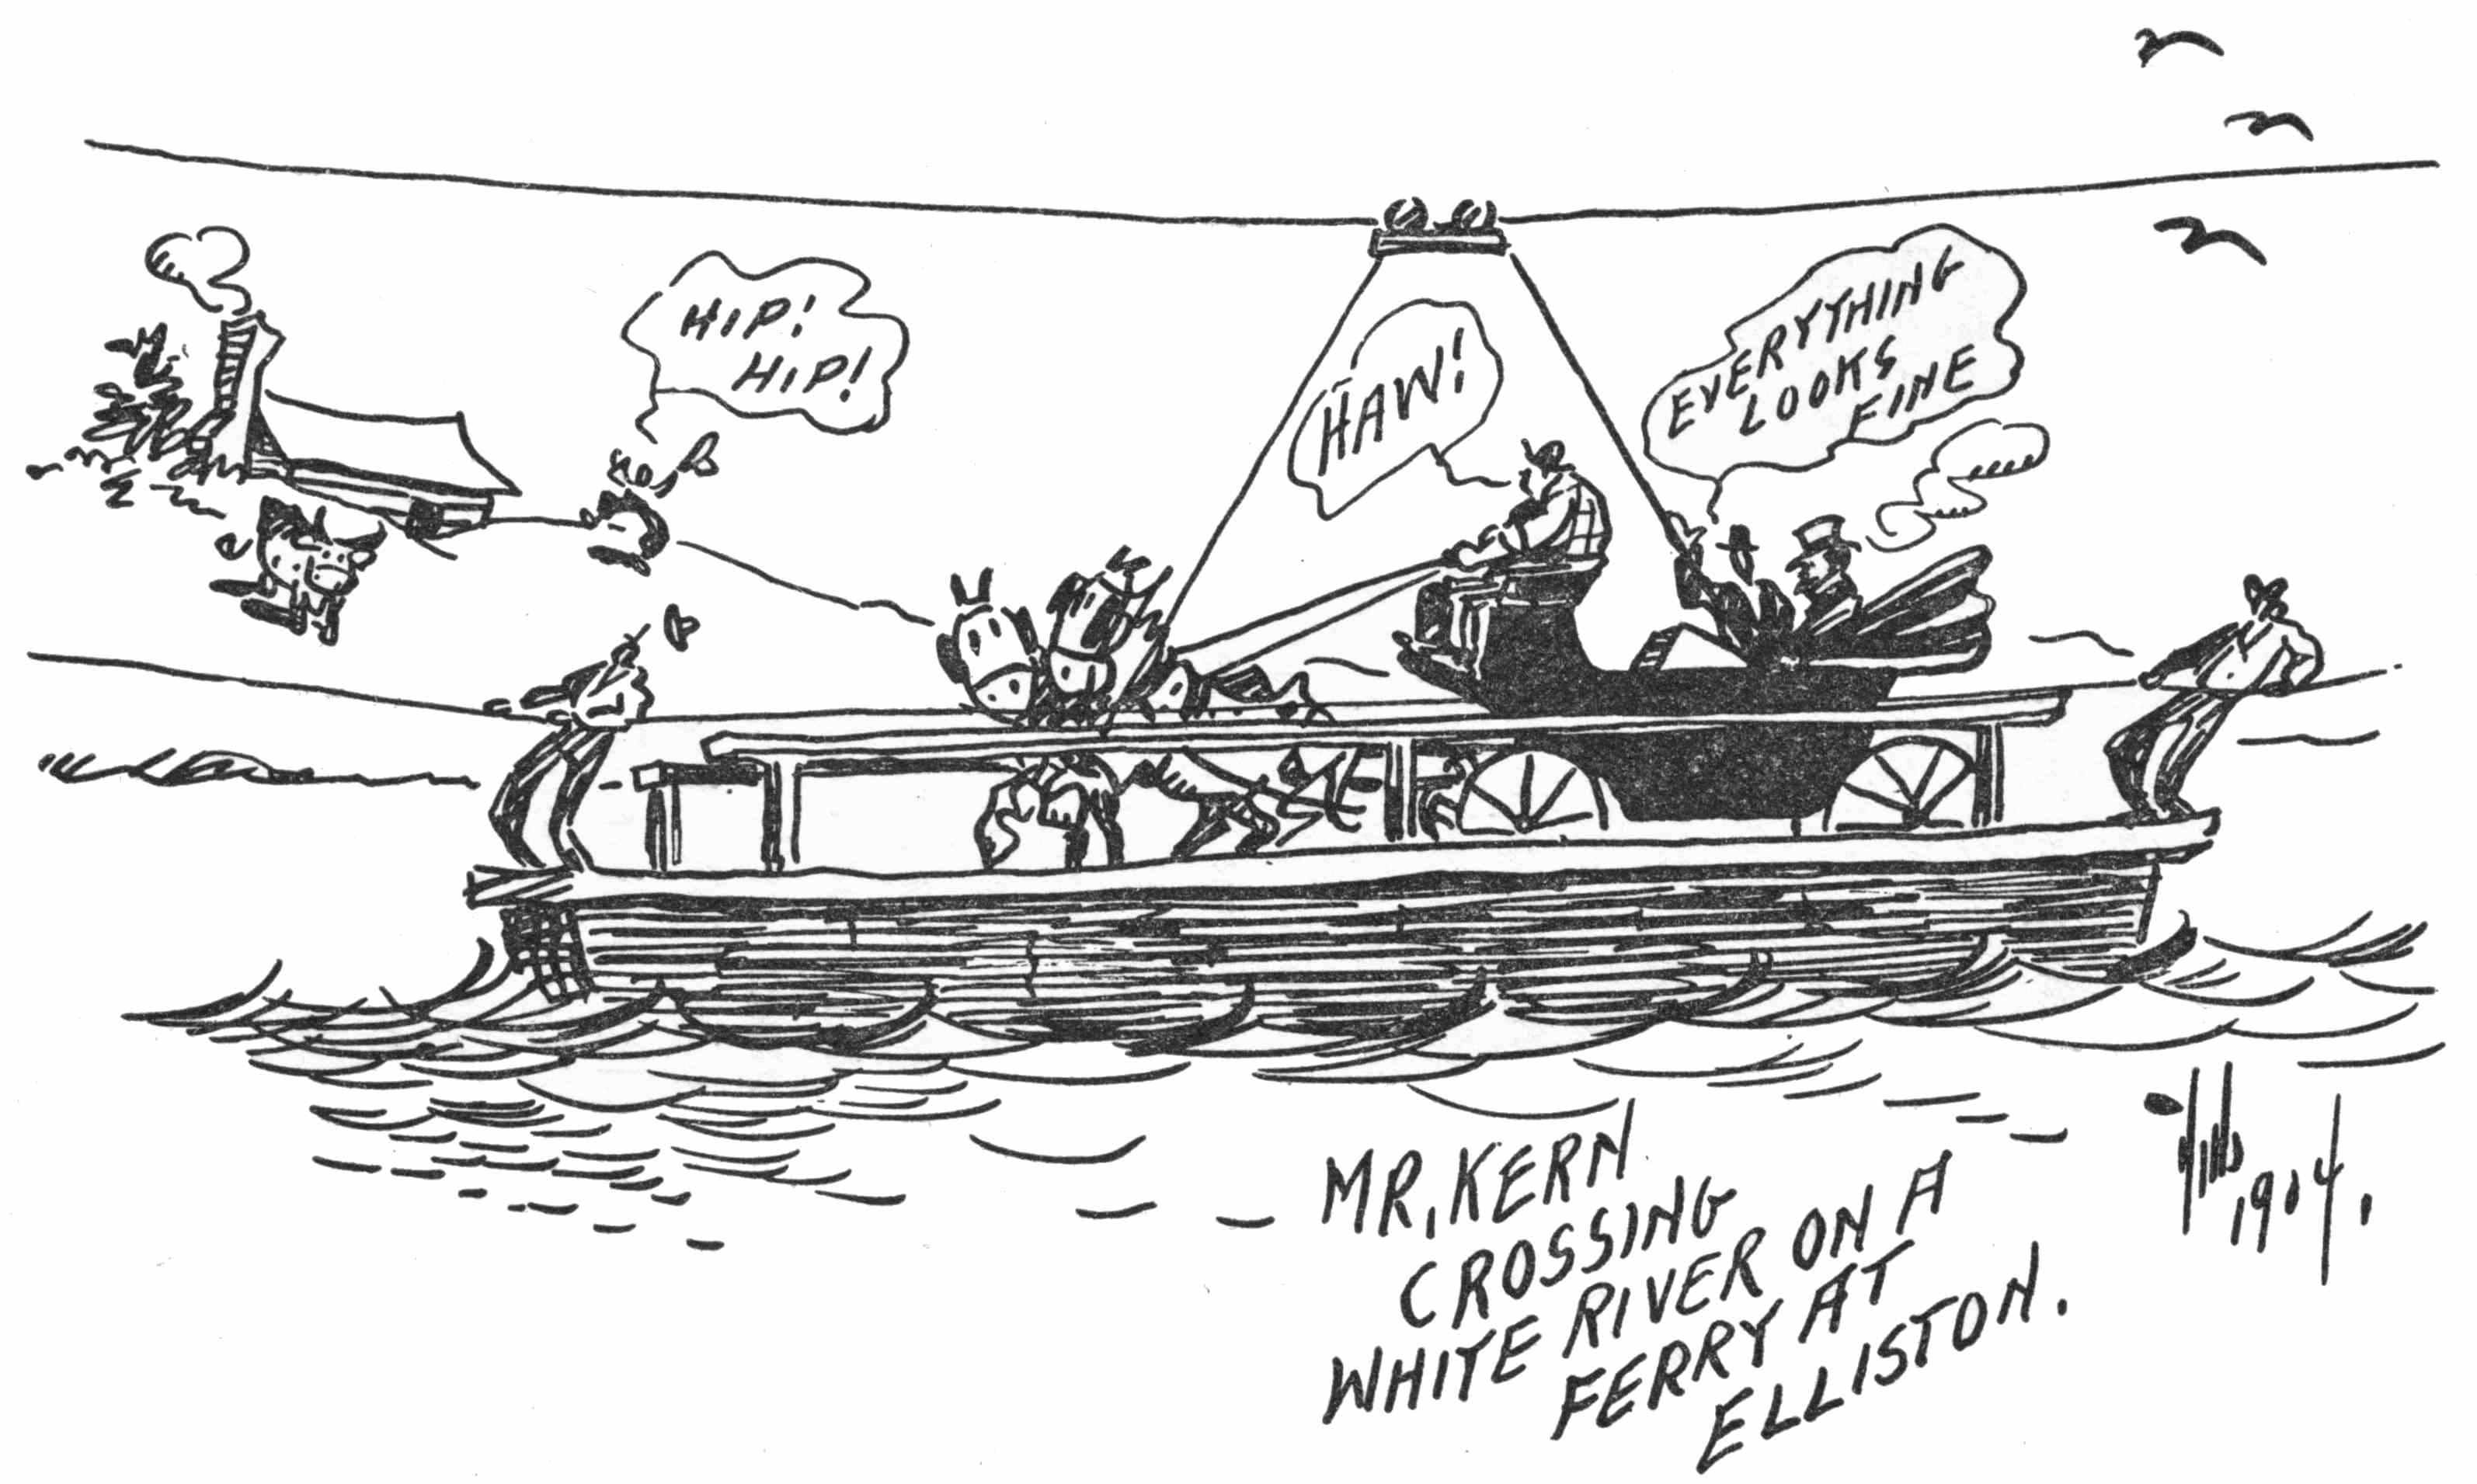 HIP!
HIP!
HAW!
EVERYTHING
LOOKS
FINE
MR. KERN
CROSSING
WHITE RIVER ON A
FERRY AT
ELLISTON.
1904.